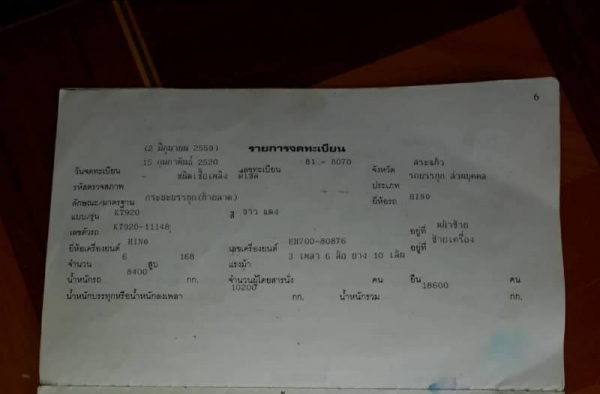 6
(2 มิถุนายน 2559) รายการจดทะเบียน
15 กุมภาพันธ์ 2520 81 - 6070 สระแก้ว
วันจดทะเบียน เลขทะเบียน จังหวัด
- ชนิดเชื้อเพลิง ดีเซล รถบรรทุก ส่วนบุคคล
รหัสตรวจสภาพ ประเภท
กระบะบรรทุก(ท้ายลาด) - - HINO
ลักษณะ/มาตรฐาน ยี่ห้อรถ
KT920 ขาว แดง
แบบ/รุ่น สี
KT920-11148 หลังซ้าย
เลขตัวรถ อยู่ที่
HINO EH700-80876 ซ้ายเครื่อง
ยี่ห้อเครื่องยนต์ เลขเครื่องยนต์ อยู่ที่
6 168 3 เพลา 6 ล้อ ยาง 10 เส้น
จำนวน สูบ แรงม้า
8400
น้ำหนักรถ กก. จำนวนผู้โดยสารนั่ง คน ยืน คน
10200 18600
น้ำหนักบรรทุกหรือน้ำหนักลงเพลา กก. น้ำหนักรวม กก.